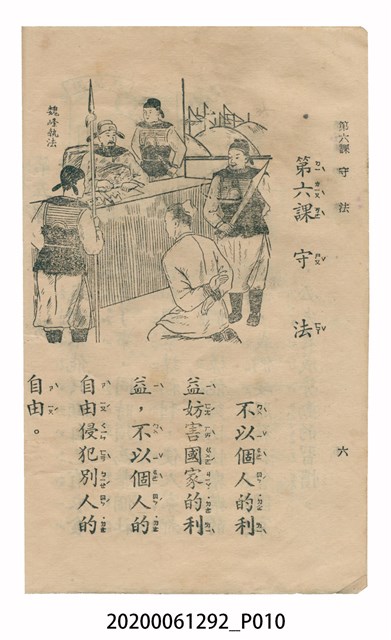 第六課 守法
六
第六課 守法
魏絳執法
不以個人的利
益妨害國家的利
益，不以個人的
自由侵犯別人的
自由。
20200061292_P010